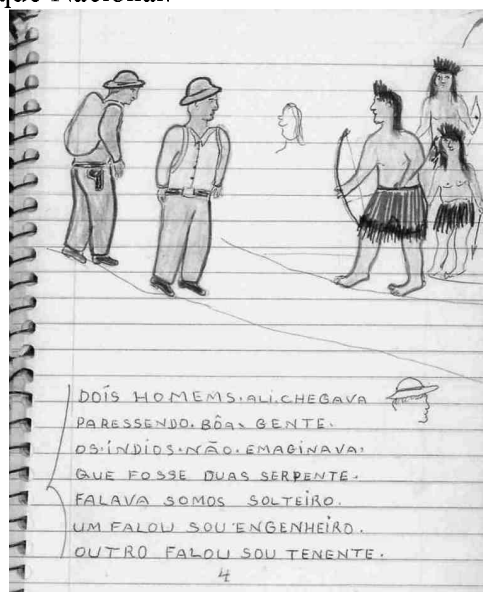 que Nacional.
DOIS HOMEMS.ALI.CHEGAVA
PARESSENDO.BÔA.GENTE.
OS.ÍNDIOS.NÃO.EMAGINAVA.
QUE FOSSE DUAS SERPENTE.
FALAVA SOMOS SOLTEIRO.
UM FALOU SOU ENGENHEIRO.
OUTRO FALOU SOU TENENTE.
4